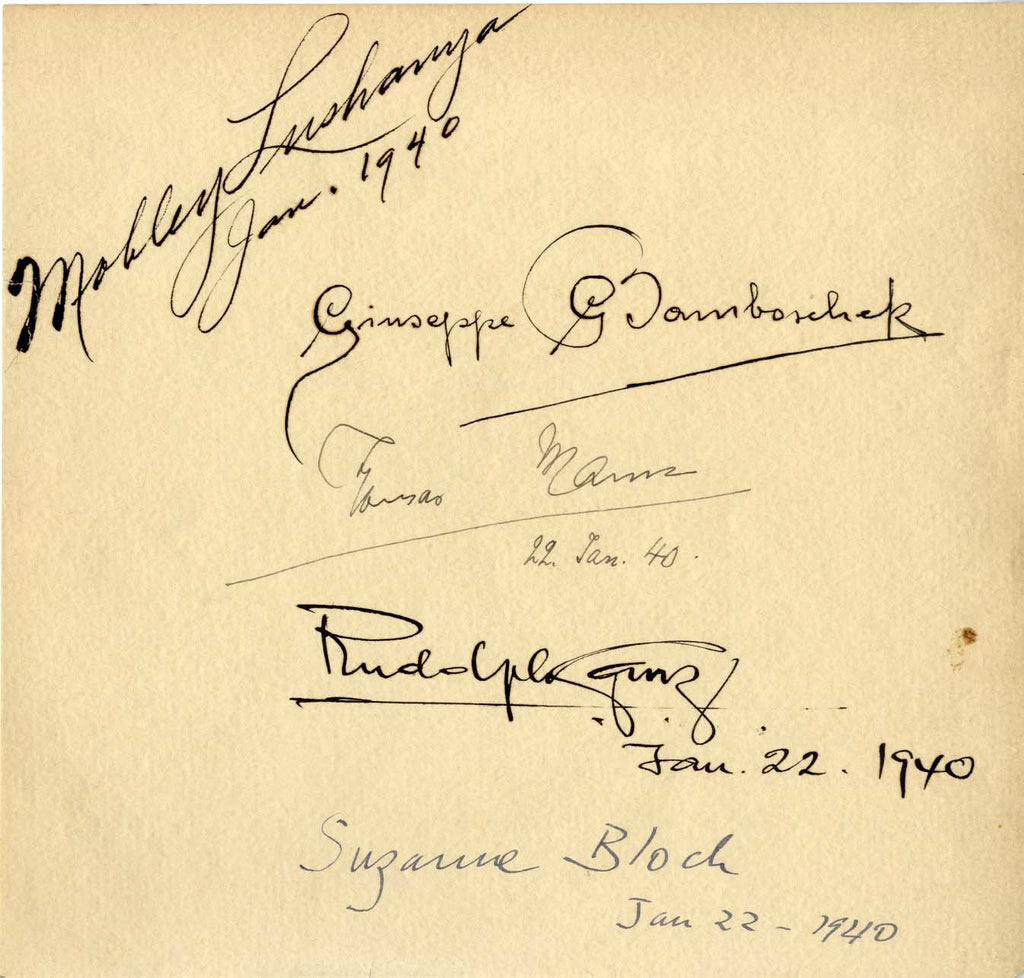 Mobley Lushanya
Jan. 1940
Giuseppe Bamboschek
Thomas Mann
22. Jan. 40.
Rudolph Ganz
Jan. 22. 1940
Suzanne Bloch
Jan 22 - 1940